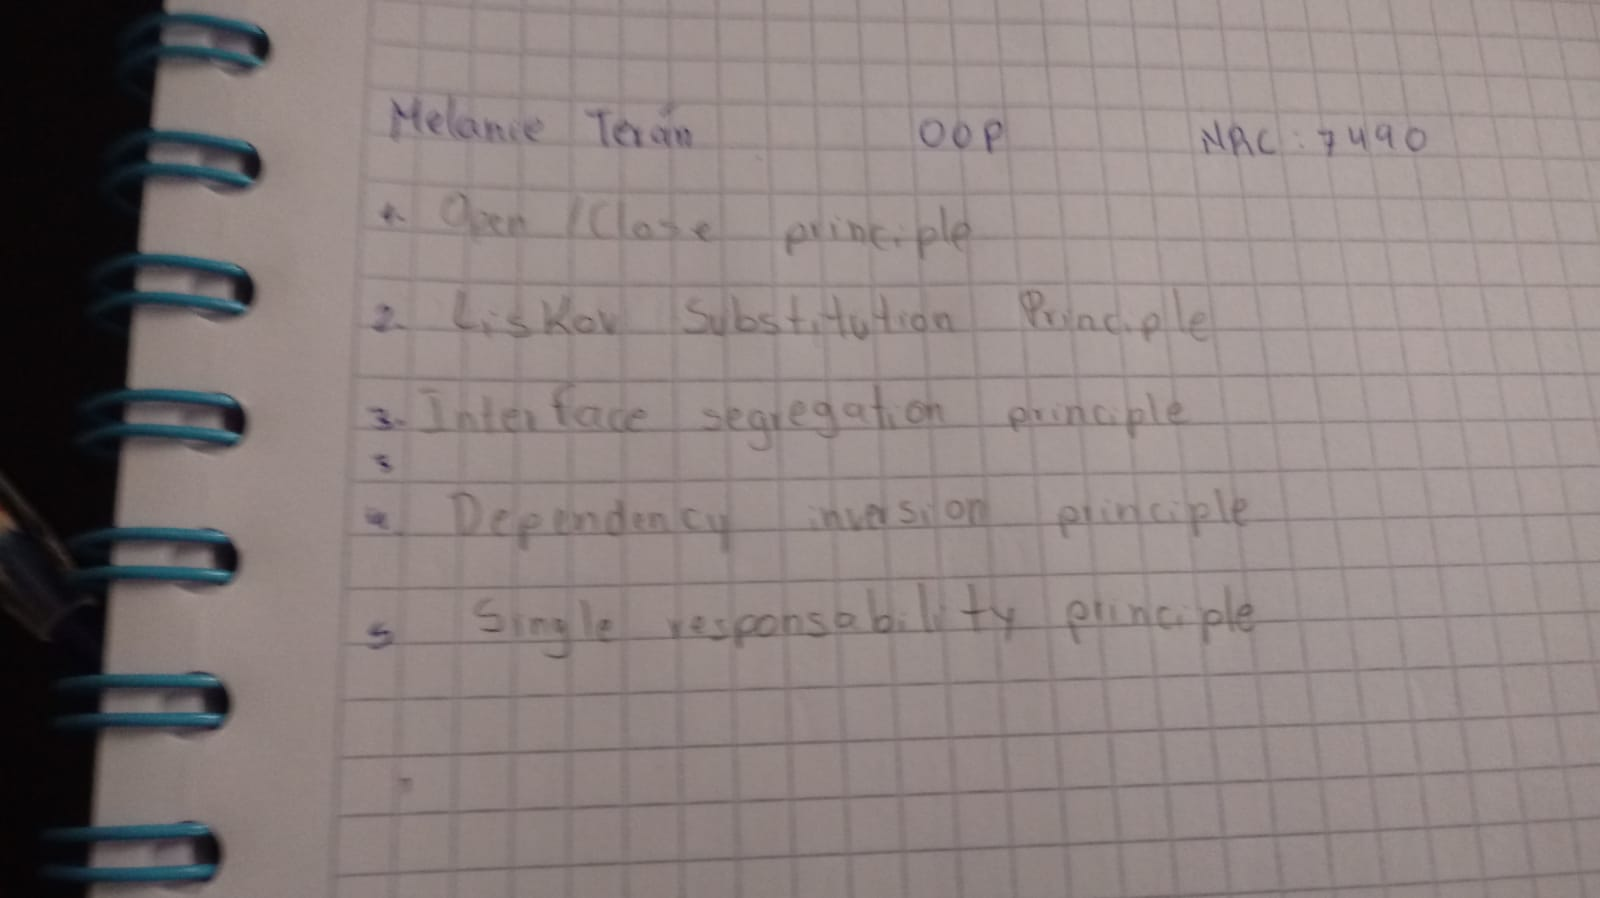 Melanie Terán OOP NRC: 7490
1. Open /Close principle
2. Liskov Substitution Principle
3. Interface segregation principle
3
4. Dependency inversion principle
5 Single responsability principle